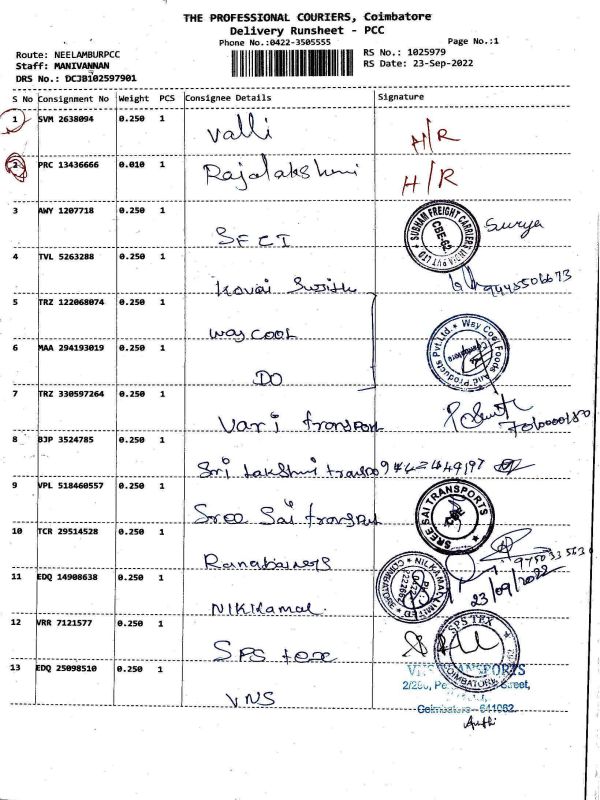 THE PROFESSIONAL COURIERS, Coimbatore
Delivery Runsheet - PCC
Phone No.:0422-3505555
Page No.:1
Route: NEELAMBURPCC
RS No.: 1025979
Staff: MANIVANNAN
RS Date: 23-Sep-2022
DRS No.: DCJB102597901
S No Consignment No Weight PCS Consignee Details Signature
1 SVM 2638094 0.250 1 Valli H/R
2 PRC 13436666 0.010 1 Rajalakshmi H/R
3 AWY 1207718 0.250 1 SFCI SUBHAM FREIGHT CARRIERS INDIA PVT LTD CBE-62 Surya
4 TVL 5263288 1 Kovai
5 TRZ 122068074 0.250 1 Way Cool
6 MAA 294193019 0.250 1 DO Way Cool Foods And Products Pvt.Ltd. Coimbatore
7 TRZ 330597264 0.250 1 Vari transport
8 BJP 3524785 0.250 1 Sri Lakshmi transpo
9 VPL 518460557 0.250 1 Sree Sai transport SREE SAI TRANSPORTS
10 TCR 29514528 0.250 1
11 EDQ 14908638 0.250 1 Nilkamal. NILKAMAL LIMITED COIMBATORE 23/09/2022
12 VRR 7121577 0.250 1 SPS tex SPS TEX COIMBATORE
13 EDQ 25098510 0.250 1 VNS TRANSPORTS
Street,
Coimbatore - 641062